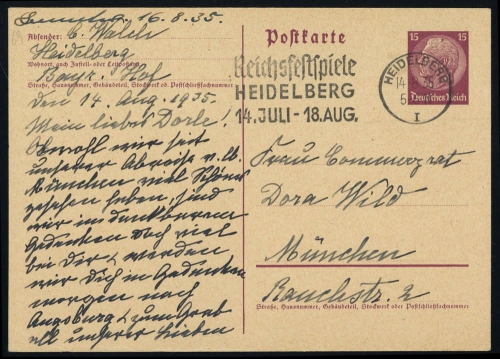 Samstag, 16.8.35.
Absender: C. Walch
Heidelberg
Wohnort, auch Zustell- oder Leitpostamt
Bayr. Hof
Straße, Hausnummer, Gebäudeteil, Stockwerk od. Postschließfachnummer
den 14. Aug. 1935.
Mein liebes Dorle!
Obwohl wir seit
unserer Abreise v. lb.
München viel Schönes
gesehen haben, sind
wir in dankbarem
Gedenken doch viel
bei Dir & werden
wir Dich in Gedanken
morgen nach
Augsburg & zum Grab
all unserer Lieben
Postkarte
Reichsfestspiele
HEIDELBERG
14. JULI - 18. AUG.
HEIDELBERG
14
35
5
I
15 15
Deutsches Reich
Frau Commerzrat
Dora Wild
München
Rauchstr. 2
Straße, Hausnummer, Gebäudeteil, Stockwerk oder Postschließfachnummer